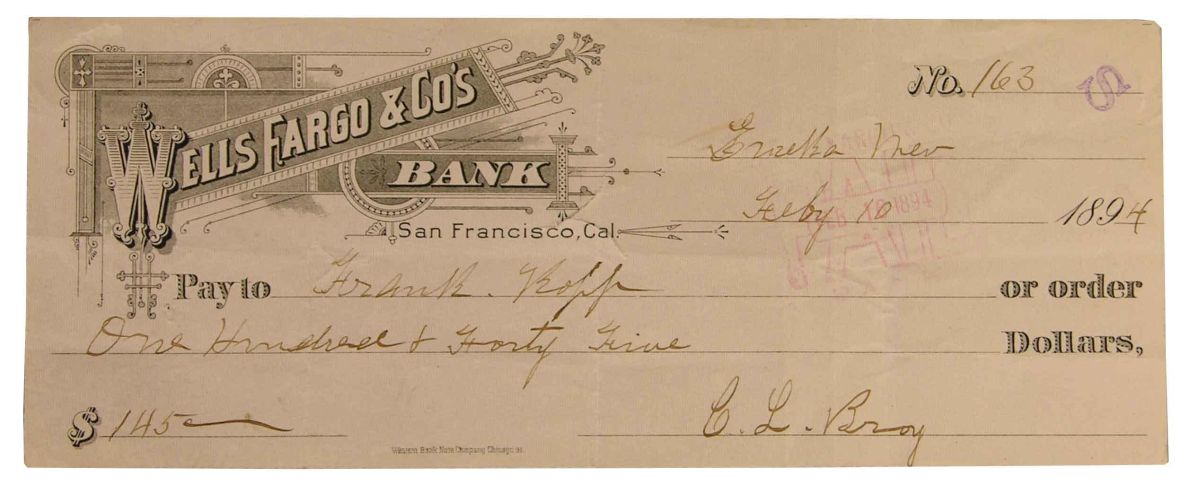 WELLS FARGO & CO'S
BANK
San Francisco, Cal.
No. 163
S
Eureka Nev
Feby 10 1894
FEB 1894
Pay to Frank. Kopp or order
One Hundred & Forty Five Dollars,
$ 145
C. L. Broy
Western Bank Note Company Chicago